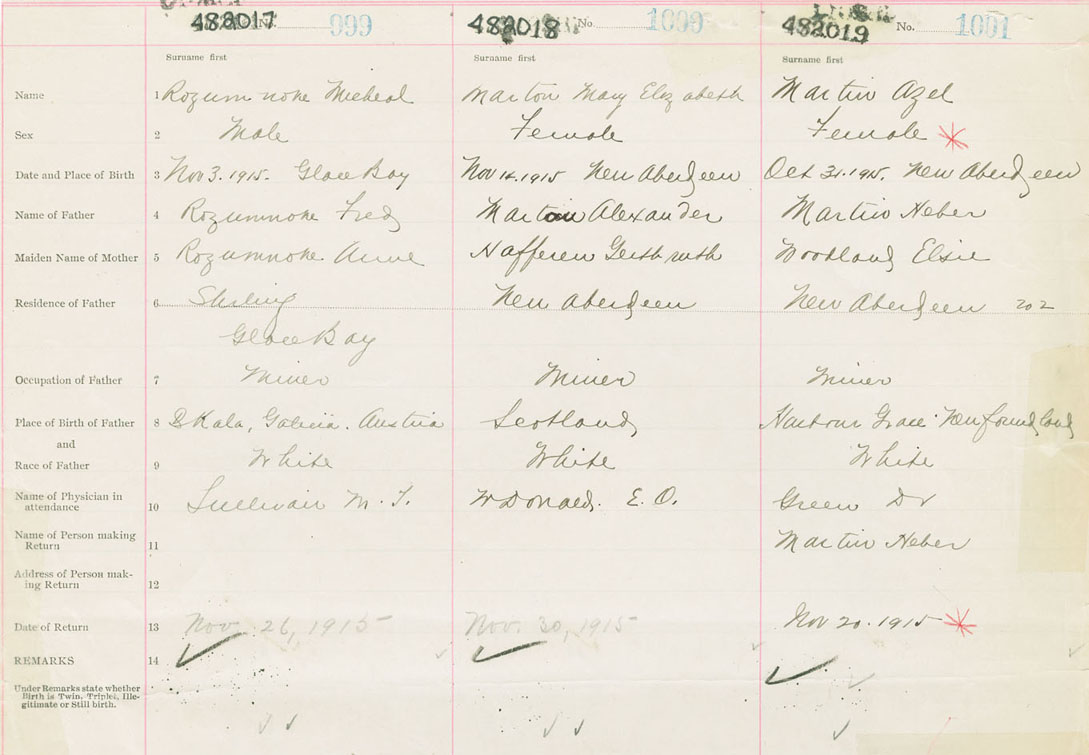 482017 No. 999 482018 No. 1000 482019 No. 1001
Surname first Surname first Surname first
Name 1 Rozumnoke Micheal Marton Mary Elizabeth Martin Azel
Sex 2 Male Female Female
Date and Place of Birth 3 Nov 3. 1915. Glace Bay Nov 14 1915 New Aberdeen Oct 31. 1915. New Aberdeen
Name of Father 4 Rozumnoke Fred Alexander Martin Heber
Maiden Name of Mother 5 Rozumnoke Anne Hafferen Woodland Elsie
Residence of Father 6 Stirling New Aberdeen New Aberdeen 202
Glace Bay
Occupation of Father 7 Miner Miner Miner
Place of Birth of Father 8 Galicia. Austria Scotland Harbour Grace Newfoundland
and
Race of Father 9 White White White
Name of Physician in
attendance 10 Sullivan M. T. McDonald. E. O. Green Dr
Name of Person making
Return 11 Martin Heber
Address of Person mak-
ing Return 12
Date of Return 13 Nov. 26, 1915 Nov. 30, 1915 Nov 20. 1915
REMARKS 14
Under Remarks state whether
Birth is Twin, Triplet, Ille-
gitimate or Still birth.